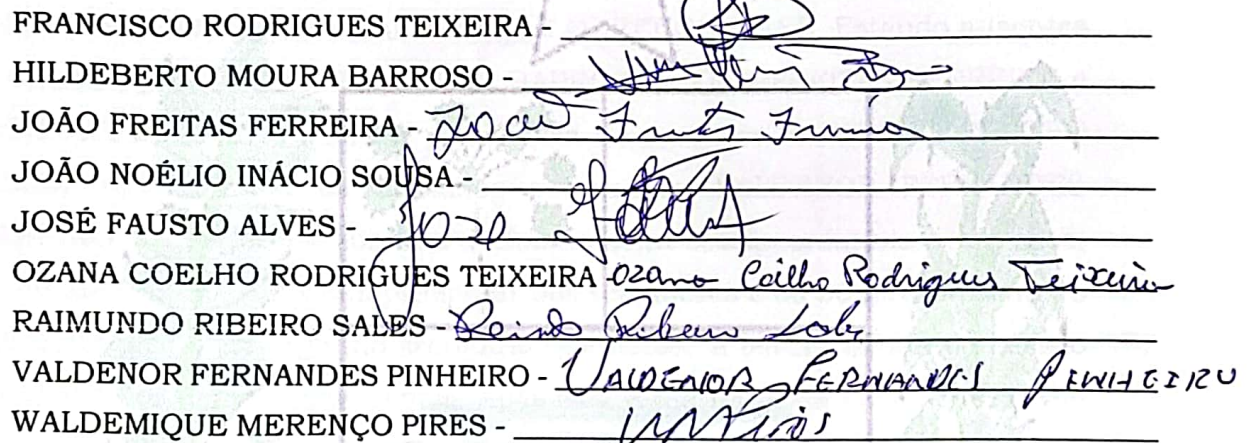 FRANCISCO RODRIGUES TEIXEIRA -
HILDEBERTO MOURA BARROSO -
JOÃO FREITAS FERREIRA -
JOÃO NOÉLIO INÁCIO SOUSA -
JOSÉ FAUSTO ALVES - José
OZANA COELHO RODRIGUES TEIXEIRA - Ozana Coelho Rodrigues Teixeira
RAIMUNDO RIBEIRO SALES - Ribeiro Sales
VALDENOR FERNANDES PINHEIRO - VALDENOR FERNANDES PINHEIRO
WALDEMIQUE MERENÇO PIRES -